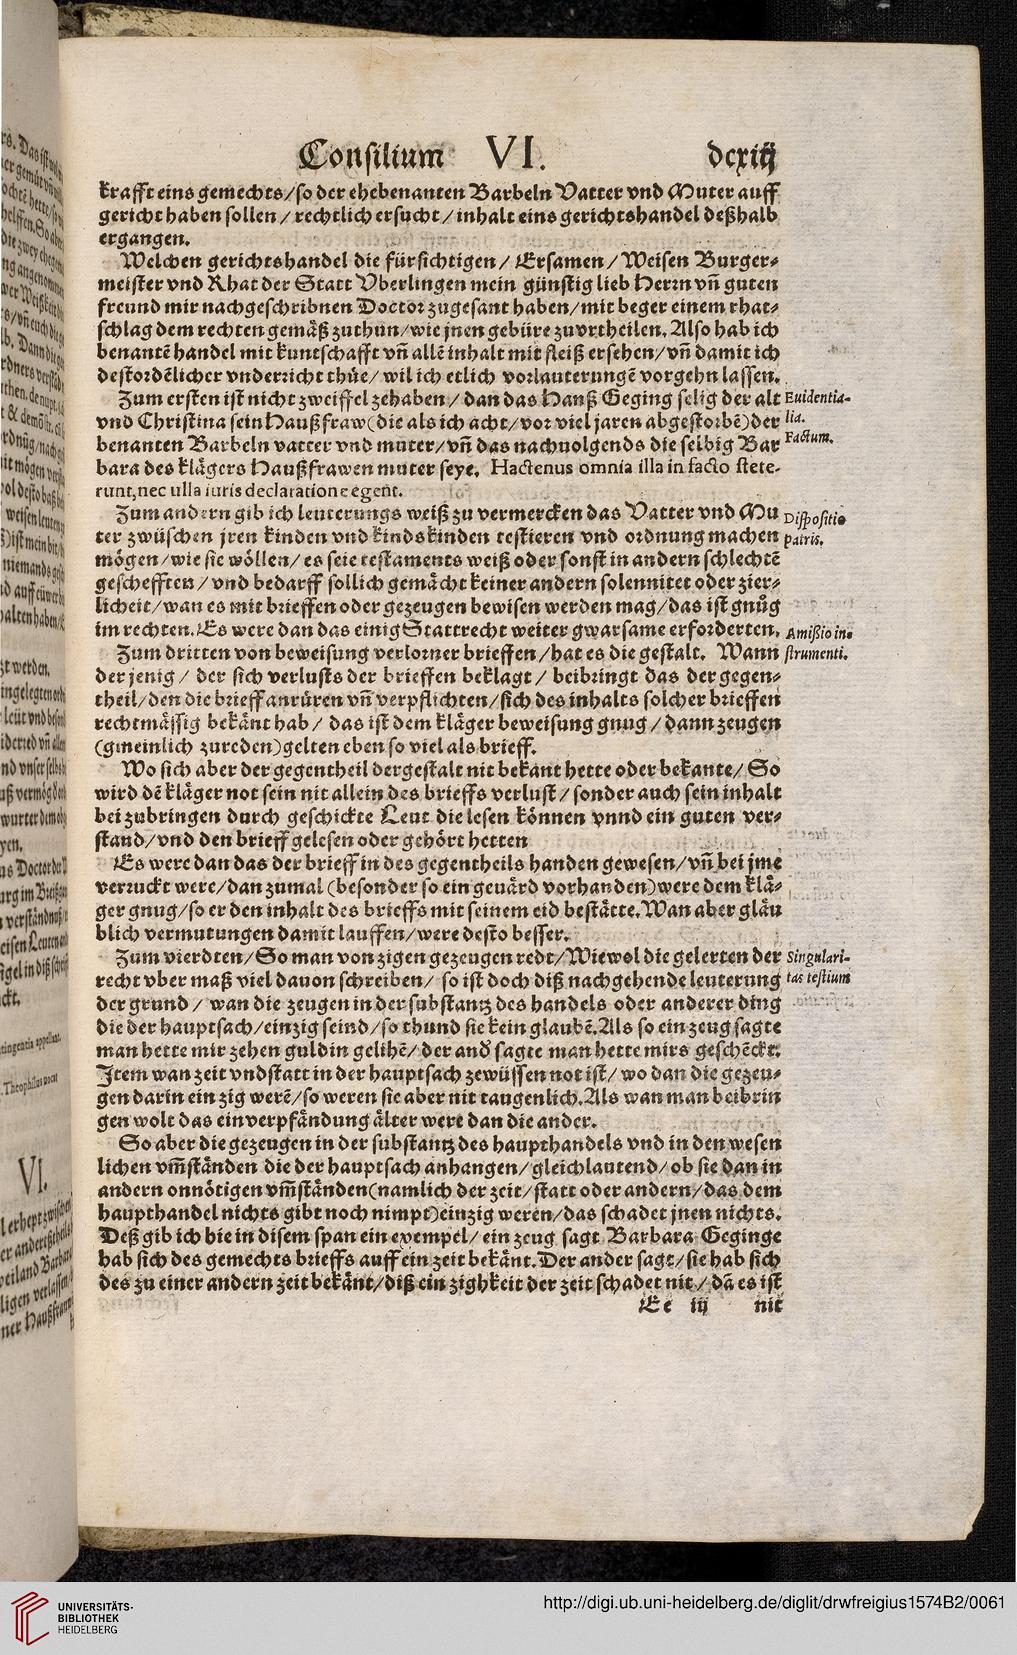 Consilium VI. dcxiij
krafft eins gemechts/so der ehebenanten Barbeln Vatter vnd Muter auff
gericht haben sollen / rechtlich ersucht / inhalt eins gerichtshandel deßhalb
ergangen.
Welchen gerichtshandel die fürsichtigen / Ersamen / Weisen Burger⸗
meister vnd Rhat der Statt Vberlingen mein günstig lieb Herrn vn̄ guten
freund mir nachgeschribnen Doctor zugesant haben/mit beger einem rhat⸗
schlag dem rechten gemäß zuthun/wie jnen gebüre zuvrtheilen. Also hab ich
benantē handel mit kuntschafft vn̄ allē inhalt mit fleiß ersehen/vn̄ damit ich
destordēlicher vnderricht thüe/ wil ich etlich vorlauterungē vorgehn lassen.
Zum ersten ist nicht zweiffel zehaben / dan das Hanß Geging selig der alt
Euidentia-
vnd Christina sein Haußfraw (die als ich acht/vor viel jaren abgestorbē) der
lia.
benanten Barbeln vatter vnd muter/vn̄ das nachuolgends die selbig Bar
Factum.
bara des klägers Haußfrawen muter seye. Hactenus omnia illa in facto stete-
runt, nec ulla iuris declaratione egent.
Zum andern gib ich leuterungs weiß zu vermercken das Vatter vnd Mu
Dispositio
ter zwüschen jren kinden vnd kindskinden testieren vnd ordnung machen
patris.
mögen/wie sie wöllen/es seie testaments weiß oder sonst in andern schlechtē
geschefften / vnd bedarff sollich gemächt keiner andern solennitet oder zier⸗
licheit/wan es mit brieffen oder gezeugen bewisen werden mag/das ist gnůg
im rechten. Es were dan das einig Stattrecht weiter gwarsame erforderten.
Amißio in-
Zum dritten von beweisung verlorner brieffen /hat es die gestalt. Wann
strumenti.
der jenig / der sich verlusts der brieffen beklagt / beibringt das der gegen⸗
theil/den die brieff anrüren vn̄ verpflichten/sich des inhalts solcher brieffen
rechtmässig bekänt hab / das ist dem kläger beweisung gnug / dann zeugen
(gmeinlich zureden) gelten eben so viel als brieff.
Wo sich aber der gegentheil dergestalt nit bekant hette oder bekante/ So
wird dē kläger not sein nit allein des brieffs verlust / sonder auch sein inhalt
beizubringen durch geschickte Leut die lesen können vnnd ein guten ver⸗
stand/vnd den brieff gelesen oder gehört hetten
Es were dan das der brieff in des gegentheils handen gewesen/vn̄ bei jme
verzuckt were/dan zumal (besonder so ein geuärd vorhanden) were dem klä⸗
ger gnug/so er den inhalt des brieffs mit seinem eid bestätte. Wan aber gläu
blich vermutungen damit lauffen/were desto besser.
Zum vierdten/So man von zigen gezeugen redt/Wiewol die gelerten der
Singulari-
recht vber maß viel dauon schreiben/ so ist doch diß nachgehende leuterung
tas testium
der grund / wan die zeugen in der substantz des handels oder anderer ding
die der hauptsach/einzig seind/so thund sie kein glaubē. Als so ein zeug sagte
man hette mir zehen guldin gelihē/ der and̄ sagte man hette mirs geschēckt.
Item wan zeit vnd statt in der hauptsach zewüssen not ist/ wo dan die gezeu⸗
gen darin ein zig werē/so weren sie aber nit taugenlich. Als wan man beibrin
gen wolt das ein verpfändung älter were dan die ander.
So aber die gezeugen in der substantz des haupthandels vnd in den wesen
lichen vm̄ständen die der hauptsach anhangen/gleichlautend/ob sie dan in
andern onnötigen vm̄ständen(namlich der zeit/statt oder andern/das dem
haupthandel nichts gibt noch nimpt)einzig weren/das schadet jnen nichts.
Deß gib ich hie in disem span ein exempel/ ein zeug sagt Barbara Geginge
hab sich des gemechts brieffs auff ein zeit bekänt. Der ander sagt/sie hab sich
des zu einer andern zeit bekänt/diß ein zighkeit der zeit schadet nit/dā es ist
Ee iij nit
UNIVERSITÄTS-
BIBLIOTHEK
HEIDELBERG
http://digi.ub.uni-heidelberg.de/diglit/drwfreigius1574B2/0061